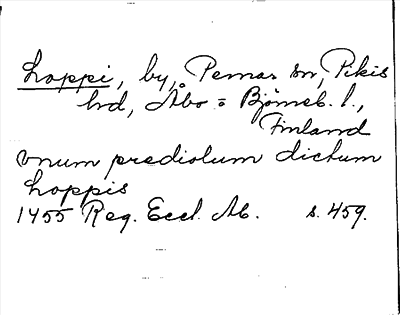 Loppi, by, Pemar sn, Pikis
hrd, Åbo = Björneb. l.,
Finland
vnum prediolum dictum
Loppis
1455 Reg. Eccl. Ab. s. 459.